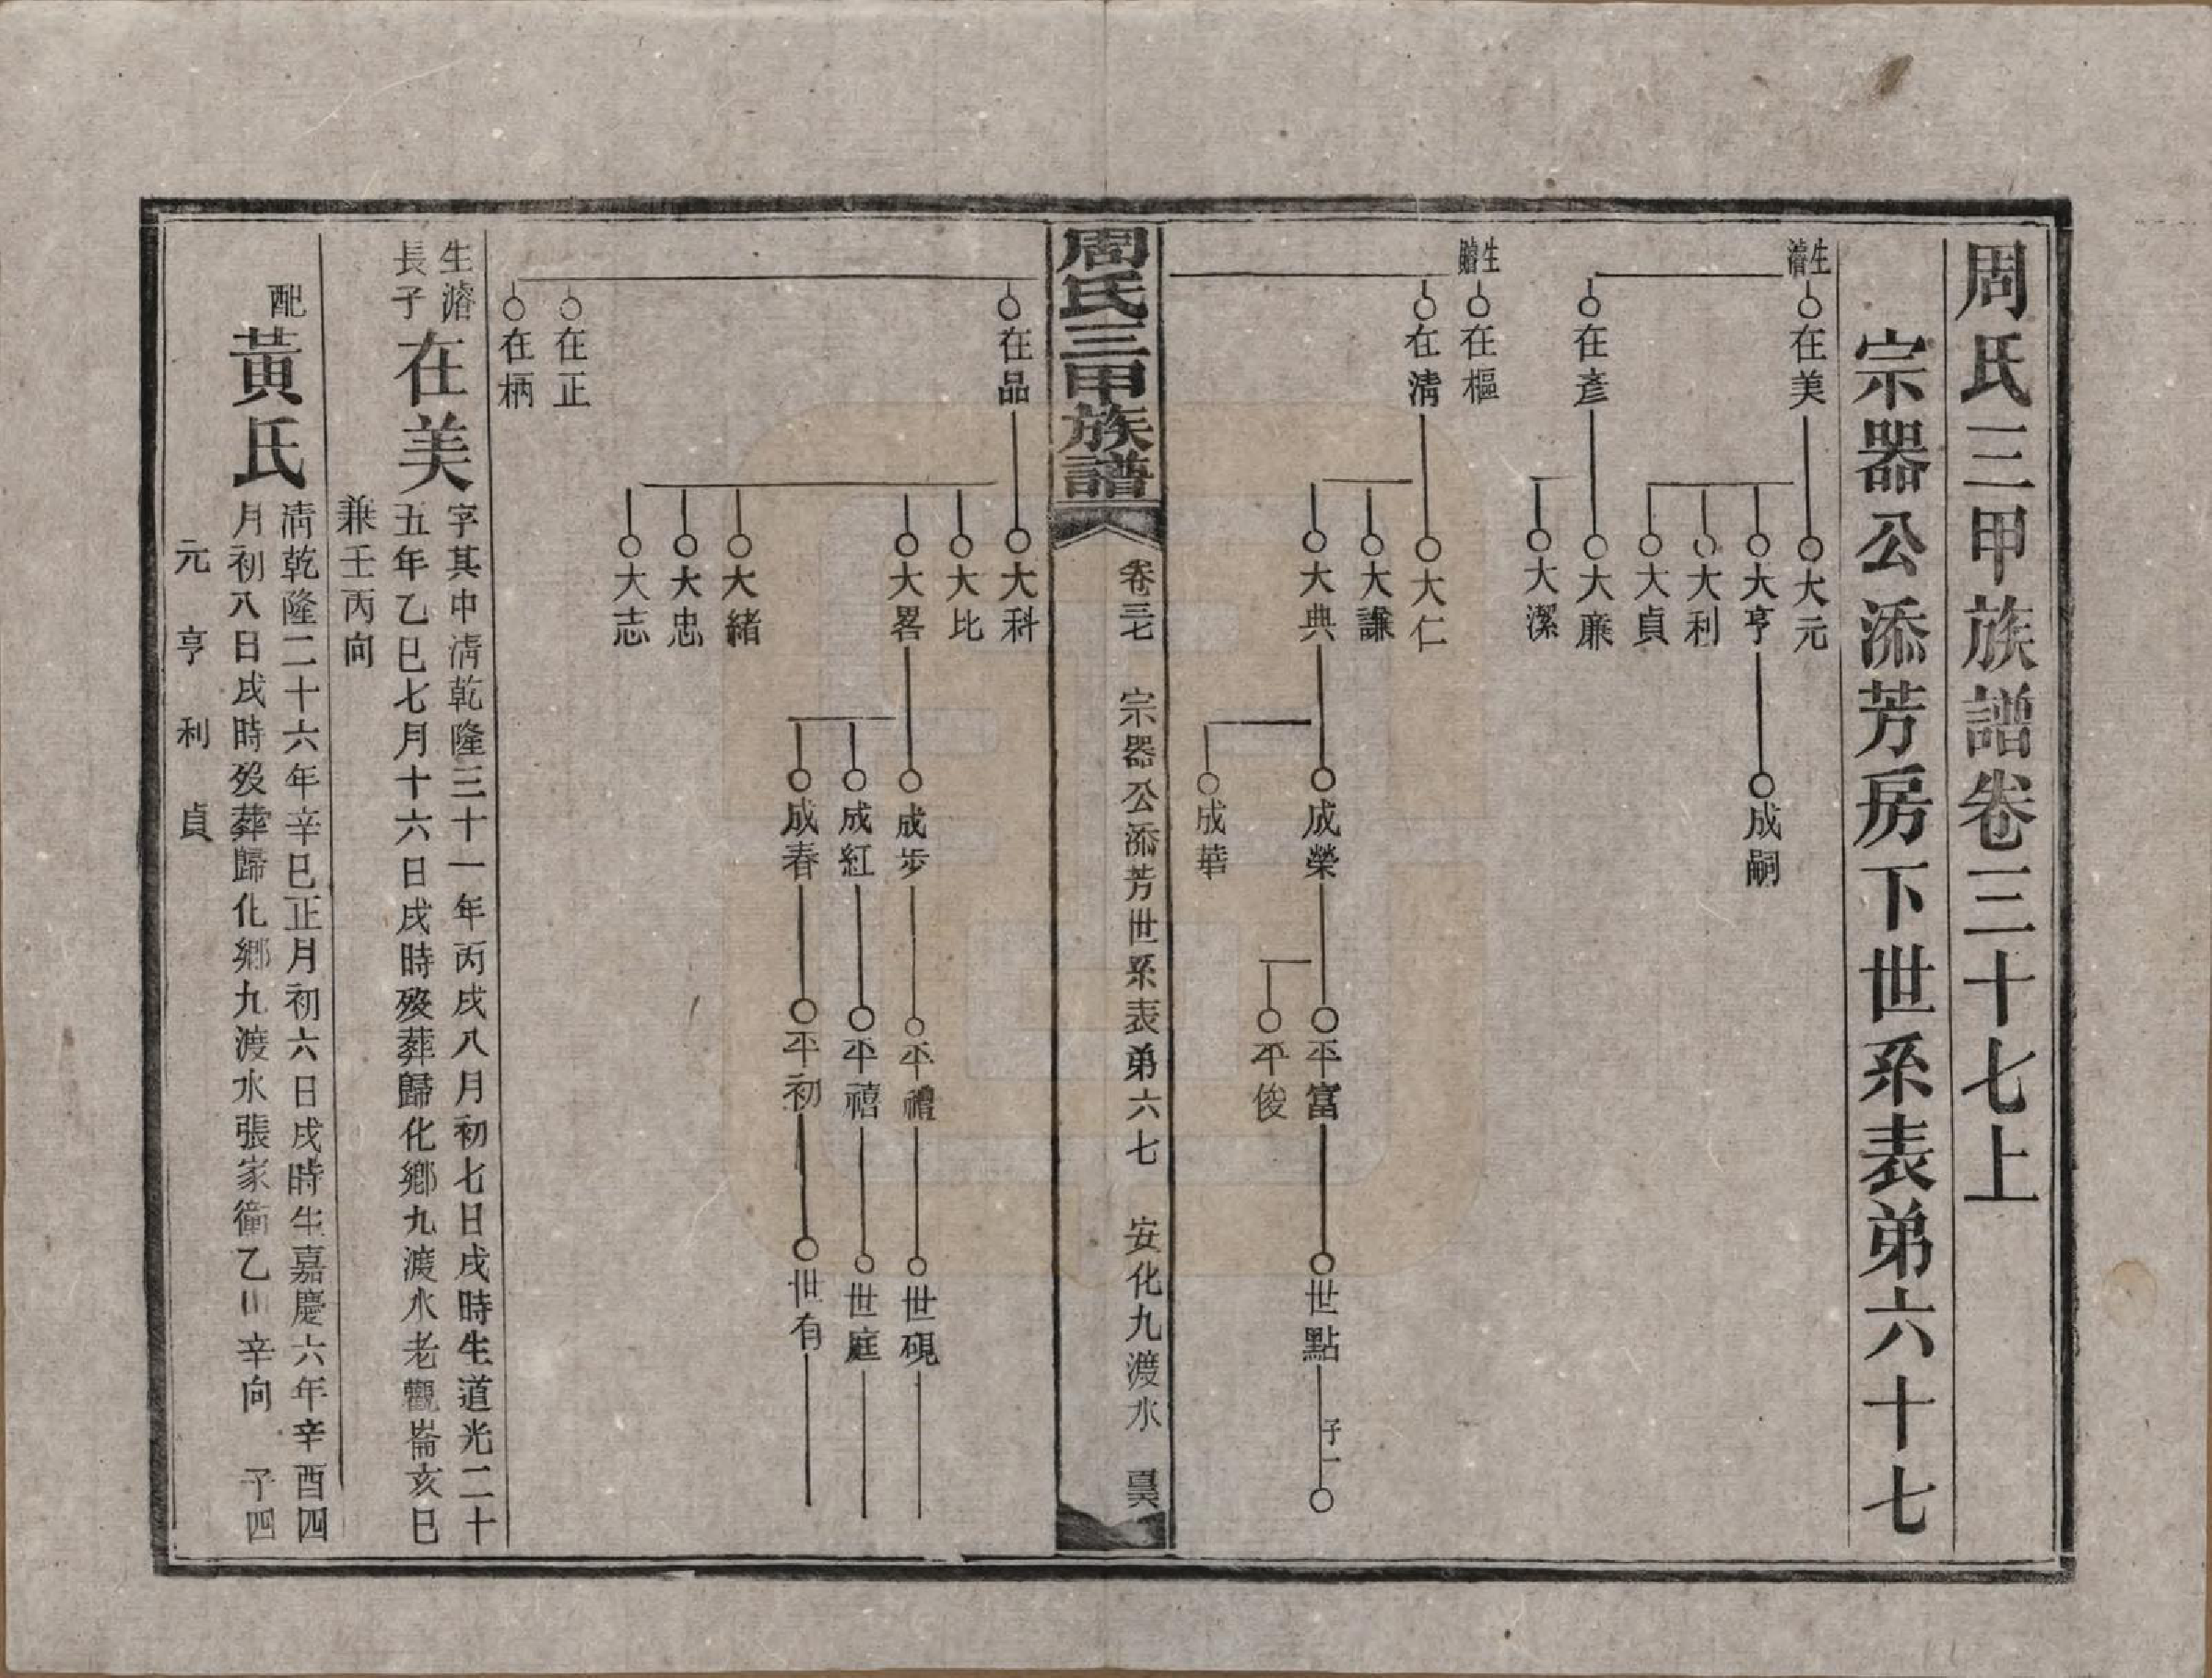 周氏三甲族譜卷三十七上
宗器公添芳房下世系表弟六十七
生濬
在美
大元
大亨
成嗣
大利
大貞
在彥
大廉
大潔
生
在樞
在清
大仁
大謙
大典
成榮
平富
世點
子一
平俊
成華
周氏三甲族譜
卷三七
宗器公添芳世系表弟六七
安化九渡水
在品
大科
大比
大畧
成步
平禮
世硯
成紅
平禧
世庭
成春
平初
世有
大緒
大忠
大志
在正
在柄
生濬長子
在美
字其中清乾隆三十一年丙戌八月初七日戌時生道光二十
五年乙巳七月十六日戌時歿葬歸化鄉九渡水老觀崙亥巳
兼壬丙向
配黃氏
清乾隆二十六年辛巳正月初六日戌時生嘉慶六年辛酉四
月初八日戌時歿葬歸化鄉九渡水張家衝乙山辛向 子四
元 亨 利 貞